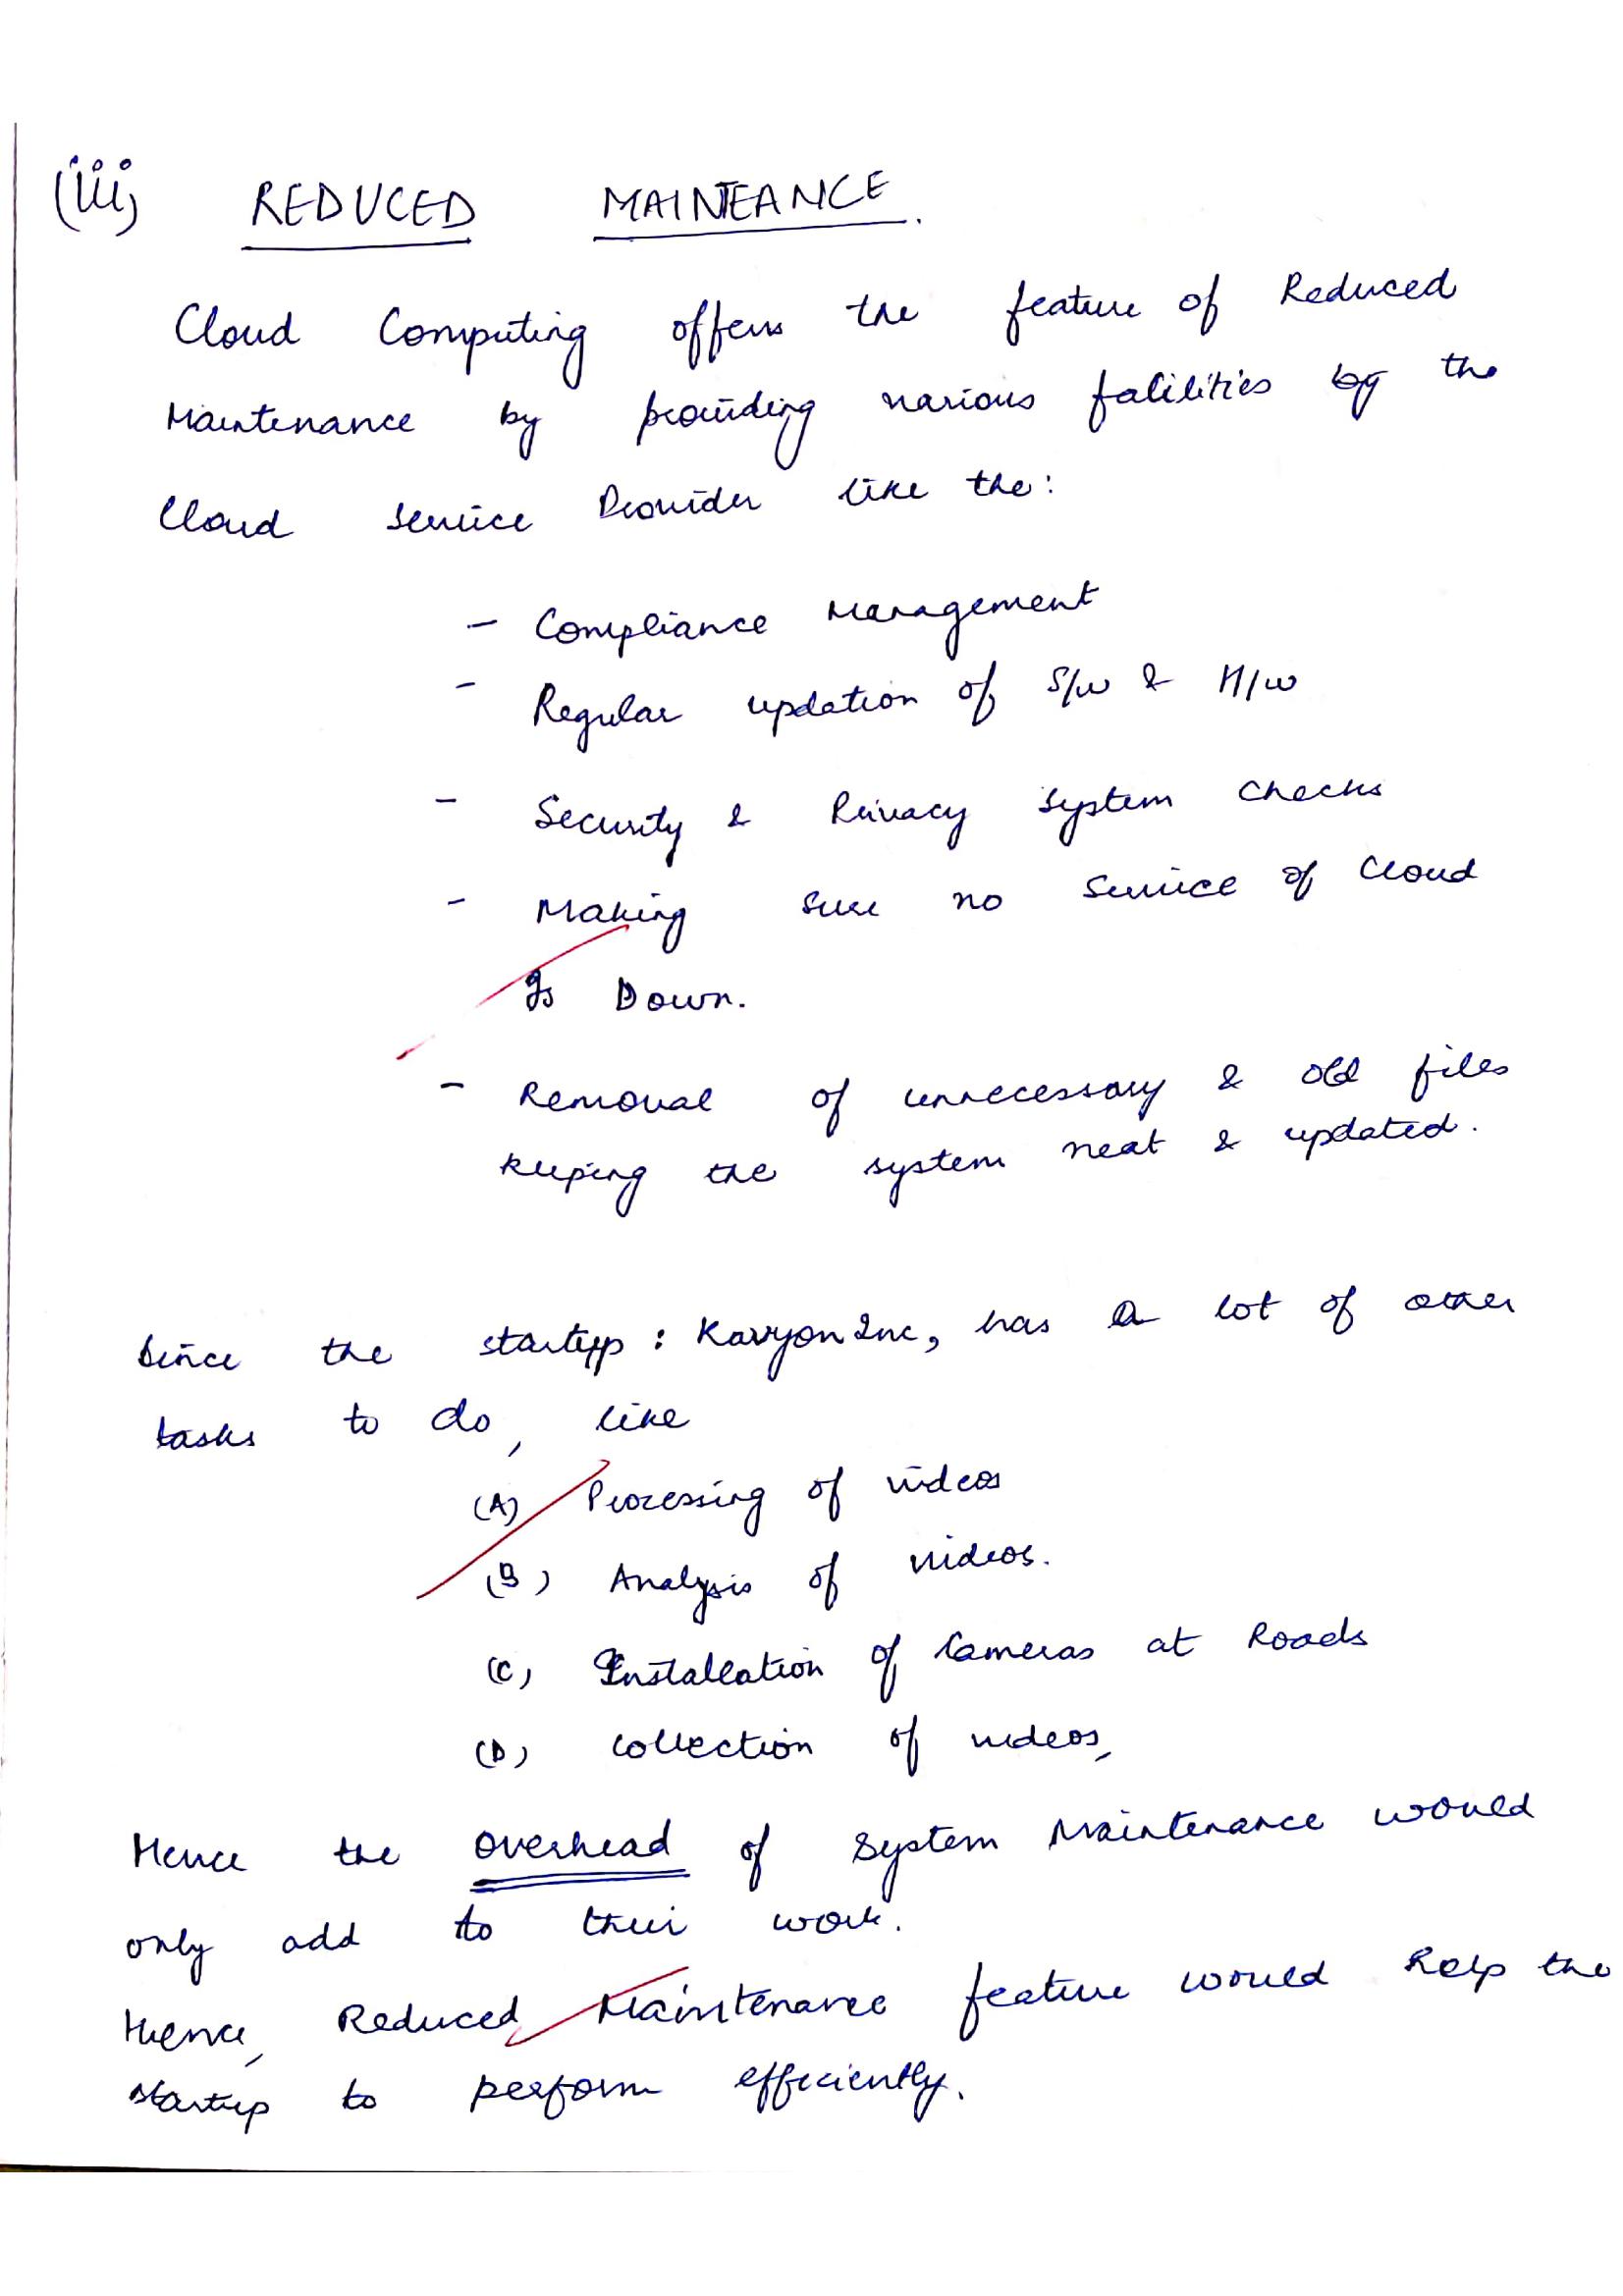 (iii) REDUCED MAINTEANCE.
Cloud Computing offers the feature of Reduced
Maintenance by providing various falilities by the
Cloud Service Provider like the:
- Compliance Management
- Regular updation of S/W & H/W
- Security & Privacy System Checks
- Making sure no service of Cloud
Is Down.
- Removal of unnecessary & old files
keeping the system neat & updated.
Since the startup : Kavyon Inc, has a lot of other
tasks to do, like
(A) Processing of videos
(B) Analysis of videos.
(C) Installation of Cameras at Roads
(D) Collection of videos,
Hence the overhead of System Maintenance would
only add to their work.
Hence, Reduced Maintenance feature would help the
startup to perform efficiently.